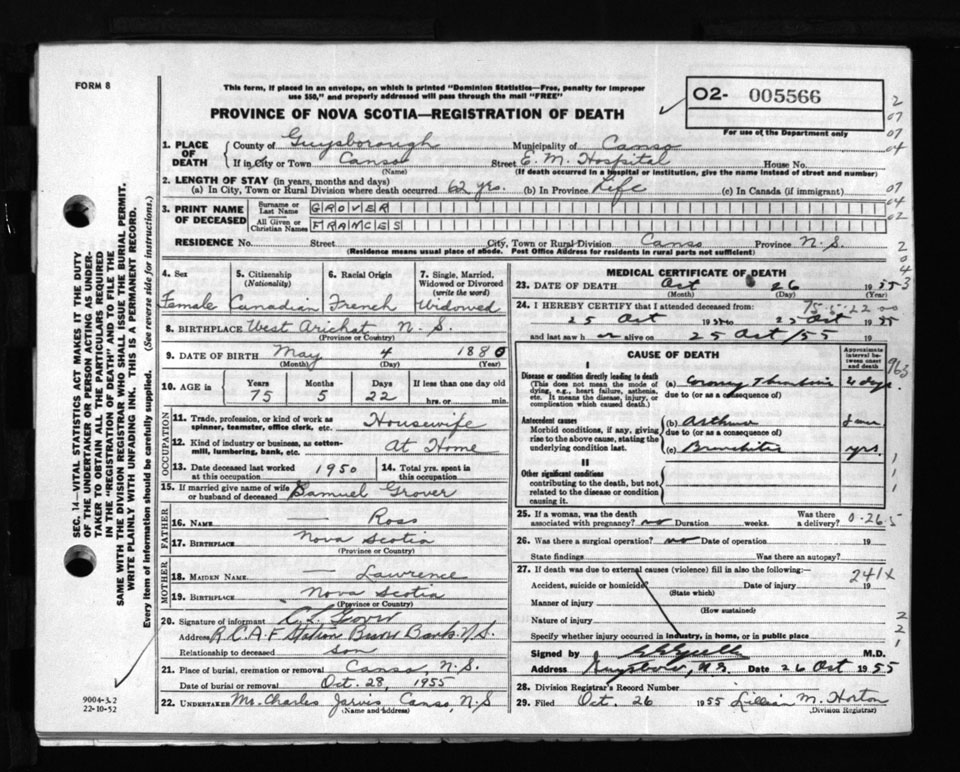 FORM 8
This form, if placed in an envelope, on which is printed "Dominion Statistics—Free, penalty for improper
use $50," and properly addressed will pass through the mail "FREE"
PROVINCE OF NOVA SCOTIA—REGISTRATION OF DEATH
O2- 005566
For use of the Department only
1. PLACE OF DEATH County of Guysborough Municipality of Canso
If in City or Town Canso Street E. M. Hospital House No.
(Name) (If death occurred in a hospital or institution, give the name instead of street and number)
2. LENGTH OF STAY (in years, months and days)
(a) In City, Town or Rural Division where death occurred 62 yrs. (b) In Province Life (c) In Canada (if immigrant)
3. PRINT NAME OF DECEASED Surname or Last Name GROVER
All Given or Christian Names FRANCES
RESIDENCE No. Street City, Town or Rural Division Canso Province N.S.
(Residence means usual place of abode. Post Office Address for residents in rural parts not sufficient)
4. Sex 5. Citizenship (Nationality) 6. Racial Origin 7. Single, Married, Widowed or Divorced (write the word)
Female Canadian French Widowed
8. BIRTHPLACE West Arichat N. S.
(Province or Country)
9. DATE OF BIRTH May 4 1880
(Month) (Day) (Year)
10. AGE in Years Months Days If less than one day old
75 5 22 hrs. or min.
OCCUPATION
11. Trade, profession, or kind of work as spinner, teamster, office clerk, etc. Housewife
12. Kind of industry or business, as cotten-mill, lumbering, bank, etc. At Home
13. Date deceased last worked at this occupation 1950 14. Total yrs. spent in this occupation
15. If married give name of wife or husband of deceased Samuel Grover
FATHER
16. NAME — Ross
17. BIRTHPLACE Nova Scotia
(Province or Country)
MOTHER
18. MAIDEN NAME — Lawrence
19. BIRTHPLACE Nova Scotia
(Province or Country)
20. Signature of informant Grover
Address R.C.A.F Station N.S.
Relationship to deceased son
21. Place of burial, cremation or removal Canso, N.S.
Date of burial or removal Oct. 28, 1955
22. UNDERTAKER Mr. Charles Jarvis Canso, N.S
(Name and Address)
MEDICAL CERTIFICATE OF DEATH
23. DATE OF DEATH Oct 26 1955
(Month) (Day) (Year)
24. I HEREBY CERTIFY that I attended deceased from: 75-5-22
25 Oct 1955 to Oct 1955
and last saw h alive on 25 Oct/55 19
CAUSE OF DEATH
Approximate interval between onset and death
I
Disease or condition directly leading to death
(This does not mean the mode of dying, e.g., heart failure, asthenia, etc. It means the disease, injury, or complication which caused death.)
(a) Coronary Thrombosis 2 days
due to (or as a consequence of)
Antecedent causes
Morbid conditions, if any, giving rise to the above cause, stating the underlying condition last.
(b) Asthma
due to (or as a consequence of)
(c) Bronchitis yrs.
II
Other significant conditions
contributing to the death, but not related to the disease or condition causing it.
25. If a woman, was the death associated with pregnancy? no Duration weeks. Was there a delivery? 0-265
26. Was there a surgical operation? no Date of operation 19
State findings Was there an autopsy?
27. If death was due to external causes (violence) fill in also the following:— 241x
Accident, suicide or homicide? Date of injury 19
(State which)
Manner of injury
(How sustained)
Nature of injury
Specify whether injury occurred in industry, in home, or in public place
Signed by M.D.
Address Guysboro, N.S. Date 26 Oct 1955
28. Division Registrar's Record Number
29. Filed Oct. 26 1955 Lillian M. Horton
(Division Registrar)
SEC. 14—VITAL STATISTICS ACT MAKES IT THE DUTY
OF THE UNDERTAKER OR PERSON ACTING AS UNDER-
TAKER TO OBTAIN ALL THE PARTICULARS REQUIRED
IN THE "REGISTRATION OF DEATH" AND TO FILE THE
SAME WITH THE DIVISION REGISTRAR WHO SHALL ISSUE THE BURIAL PERMIT.
WRITE PLAINLY WITH UNFADING INK. THIS IS A PERMANENT RECORD.
Every item of information should be carefully supplied. (See reverse side for instructions.)
9004-3.2
22-10-52
2
07
07
04
07
04
02
2
0
4
3
963
1
1
1
2
2
1